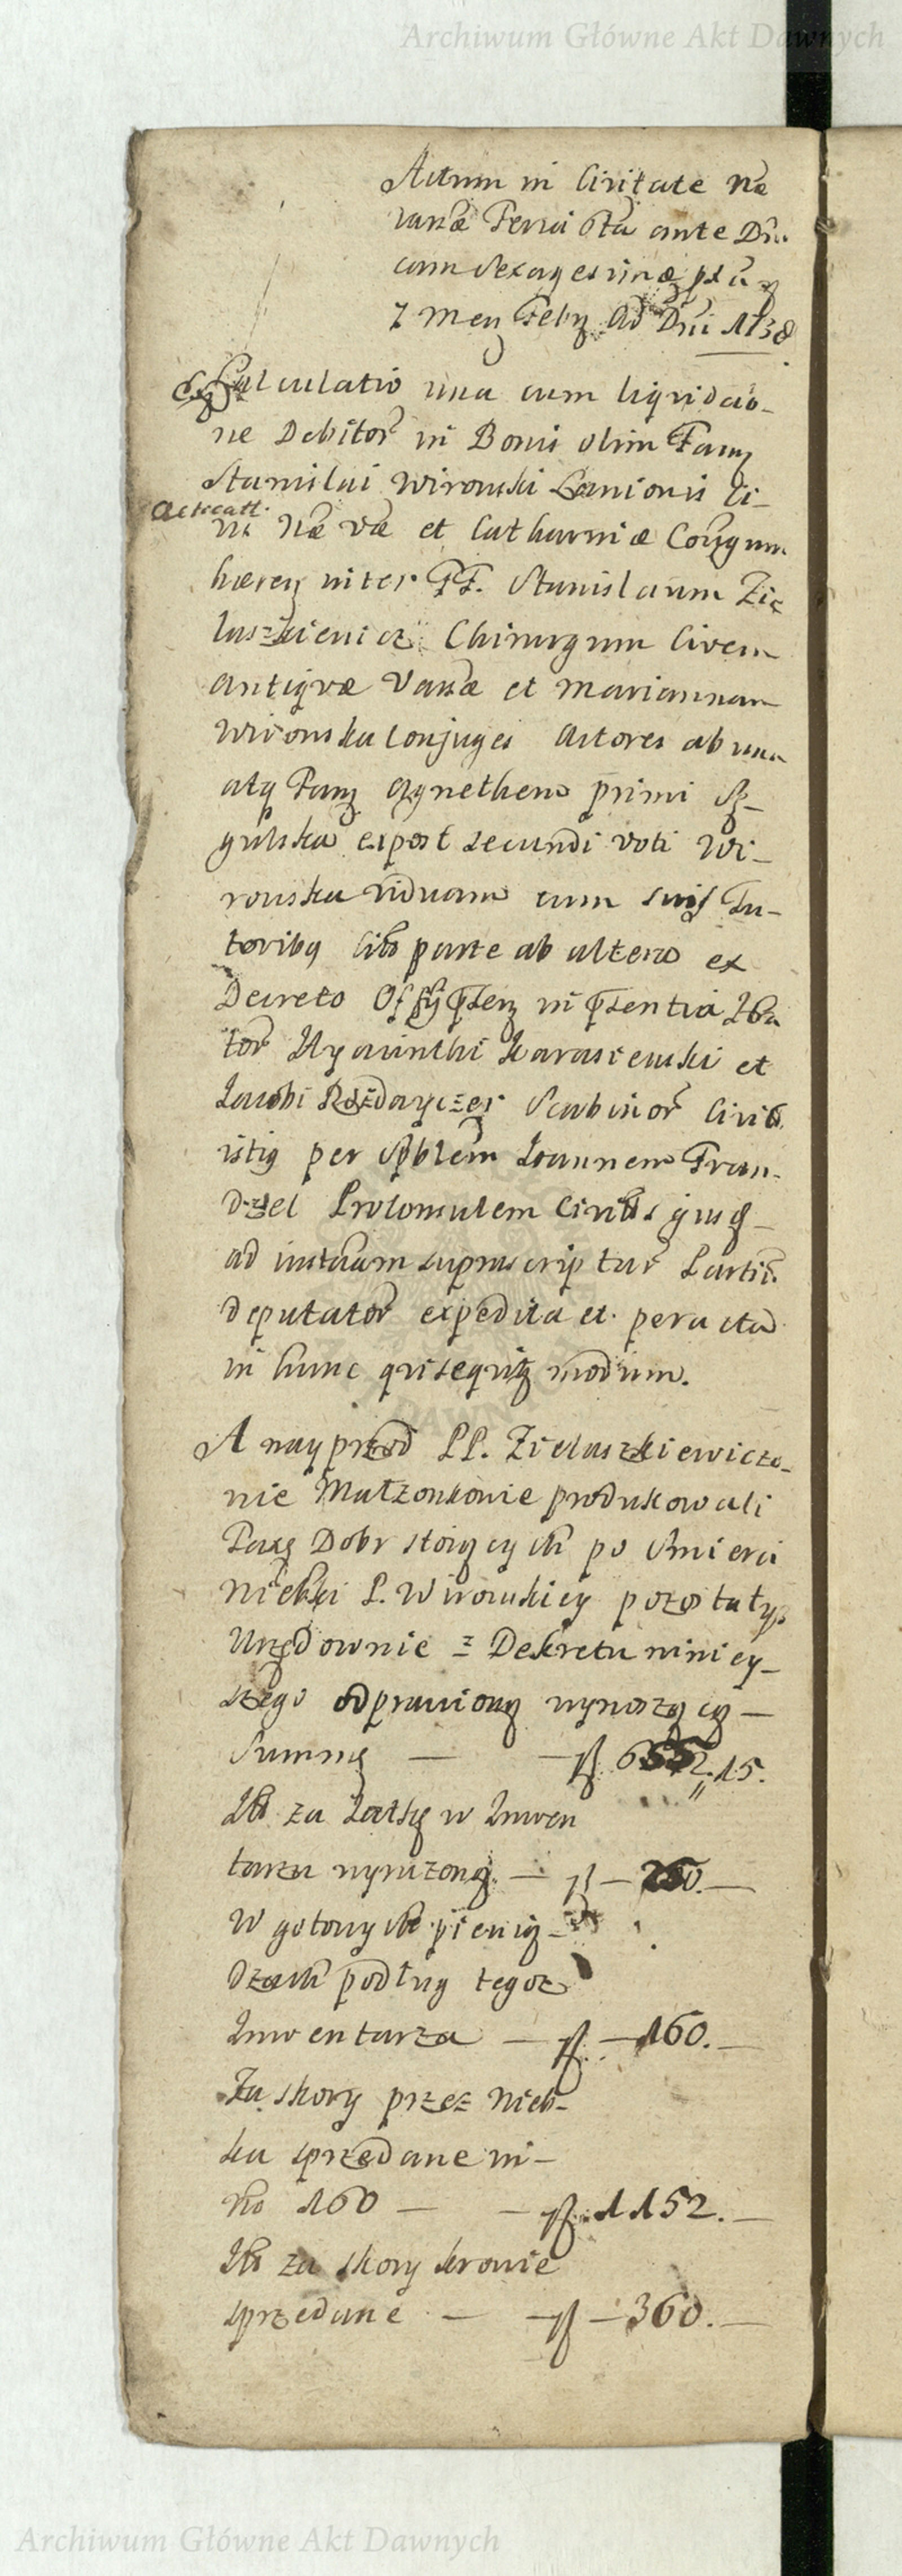 Archiwum Główne Akt Dawnych
Actum in Civitate Nã
varsæ Feria 6tã ante Dñi
cam Sexagesimæ
7 Mens Feby Aõ Dñi 1738
Calculatio una cum liqvidatio-
ne Debitor̃ in Bonis olim Fam
Stanislai Wirowski Lanionis Ci-
Acticatt.
vis Nã væ et Catharinæ Conjgum
hæren inter FF. Stanislaum Zie
laszkiewicz Chirurgum Civem
Antiqvæ Varsæ et Mariannam
Wirowska Conjuges Actores ab una
atq Fam Agnethem primi
gulska expost secundi voti Wi-
rowska viduam cum suis Tu-
toribq parte ab altera ex
Decreto Off pñtentia
tor̃ Hyacinthi Karasiewski et
Jacobi Scabinor̃ Civit
istiq per Spblem Joannem Fran-
dzel Protonulem Civitts
ad instãam suprascriptar̃ Partiũ
deputator̃ expedita et peracta
in hunc qvi seqvitz modum.
A nayprzod PP. Zielaszkiewiczo-
nie Małzonkowie produkowali
Taxę Dobr stoiących po Smierci
Niebki P. Wirowskiey pozostałych
Urzędownie z Dekretu niniey-
szego odprawioną wynoszącą —
Summę — — fl 6552 „ 15.
It za Jatkę w Inwen
tarzu wyrazoną. — fl — 260. —
W gotowych pienią-
dzach podług tegoz
Inwentarza — fl. — 160. —
Za skory przez Nieb-
ka sprzedane in-
No 160 — — fl. 1152. —
It za skory krowie
sprzedane — — fl — 360. —
Archiwum Główne Akt Dawnych